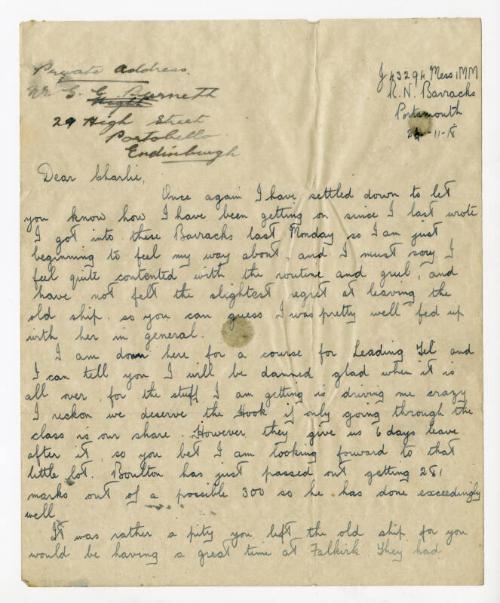 Private Address.
Mr G. G. Burneth
29 High Street
Portobello
Endinburgh
J 43294 Mess 1MM
R.N. Barracks
Portsmouth
24-11-18
Dear Charlie,
Once again I have settled down to let
you know how I have been getting on since I last wrote
I got into these Barracks last Monday so I am just
beginning to feel my way about, and I must say I
feel quite contented with the routine and grub, and
have not felt the slightest regret at leaving the
old ship, so you can guess I was pretty well fed up
with her in general.
I am down here for a course for Leading Tel and
I can tell you I will be damned glad when it is
all over, for the stuff I am getting is driving me crazy
I reckon we deserve the Hook if only going through the
class is our share. However they give us 6 days leave
after it, so you bet I am looking forward to that
little lot. Boulton has just passed out getting 281
marks out of a possible 300 so he has done exceedingly
well
It was rather a pity you left the old ship, for you
would be having a great time at Falkirk. They had